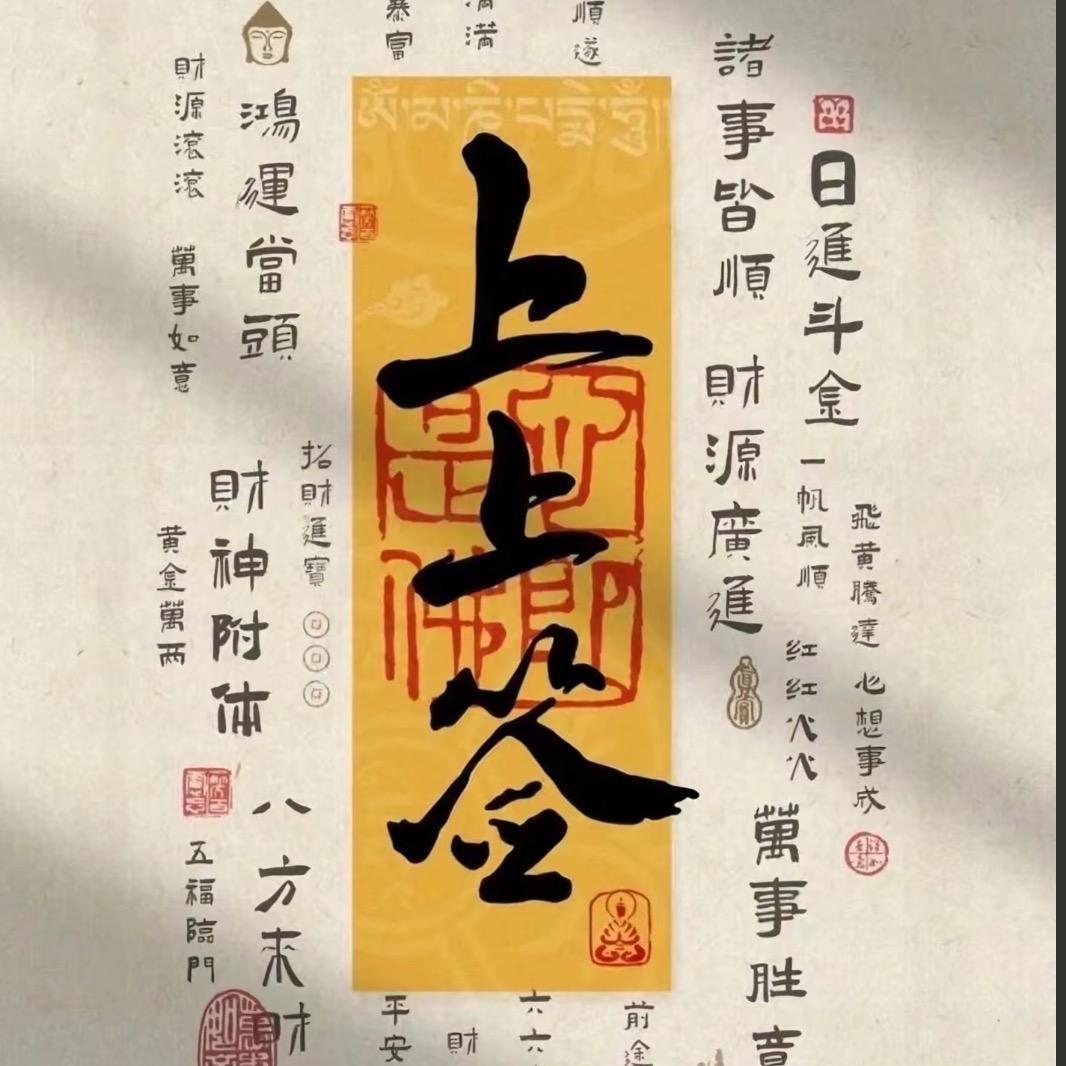 飛黄騰達
心想事成
日進斗金
一帆風順
红红火火
諸事皆順
財源廣進
萬事胜意
順遂
满
暴富
ཨོཾ་མ་ཎི་པདྨེ་ཧཱུྃ
上上签
心即是佛
前途
六六
財
平安
招財進寶
鴻運當頭
財神附体
八方来財
財源滾滾
萬事如意
黄金萬两
五福臨門